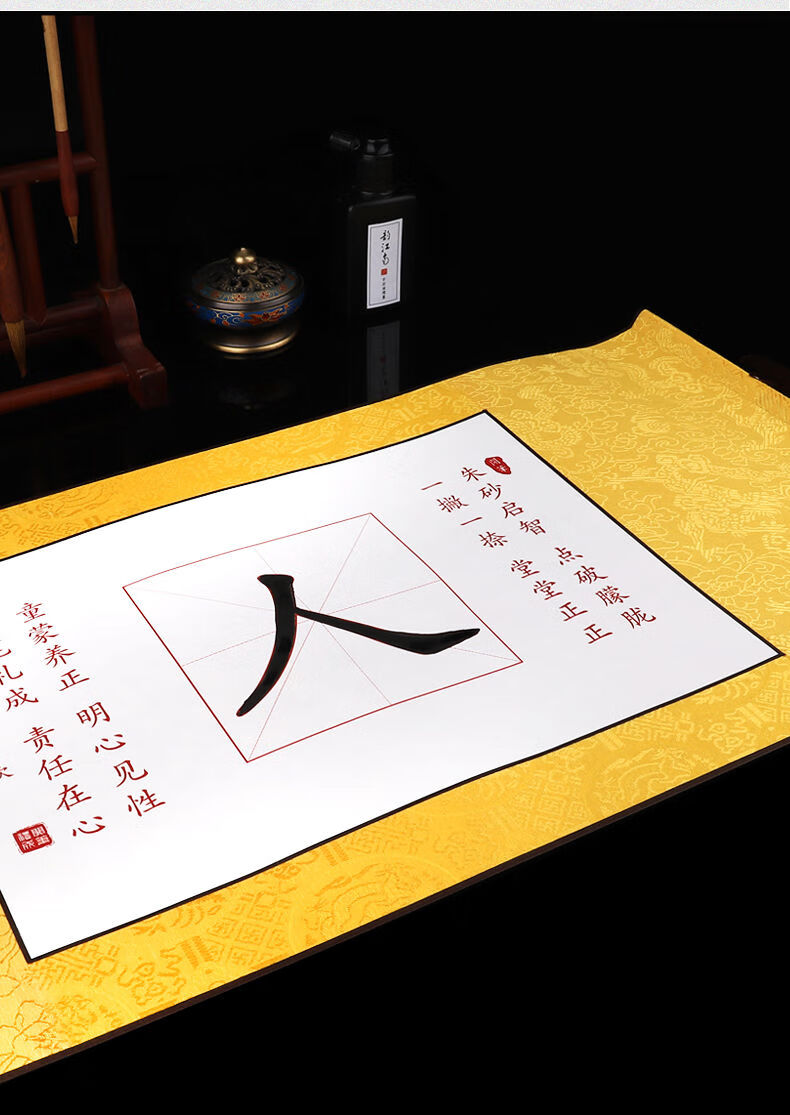 朱砂启智 点破朦胧
一撇一捺 堂堂正正
人
童蒙养正 明心见性
礼成 责任在心
韵江南